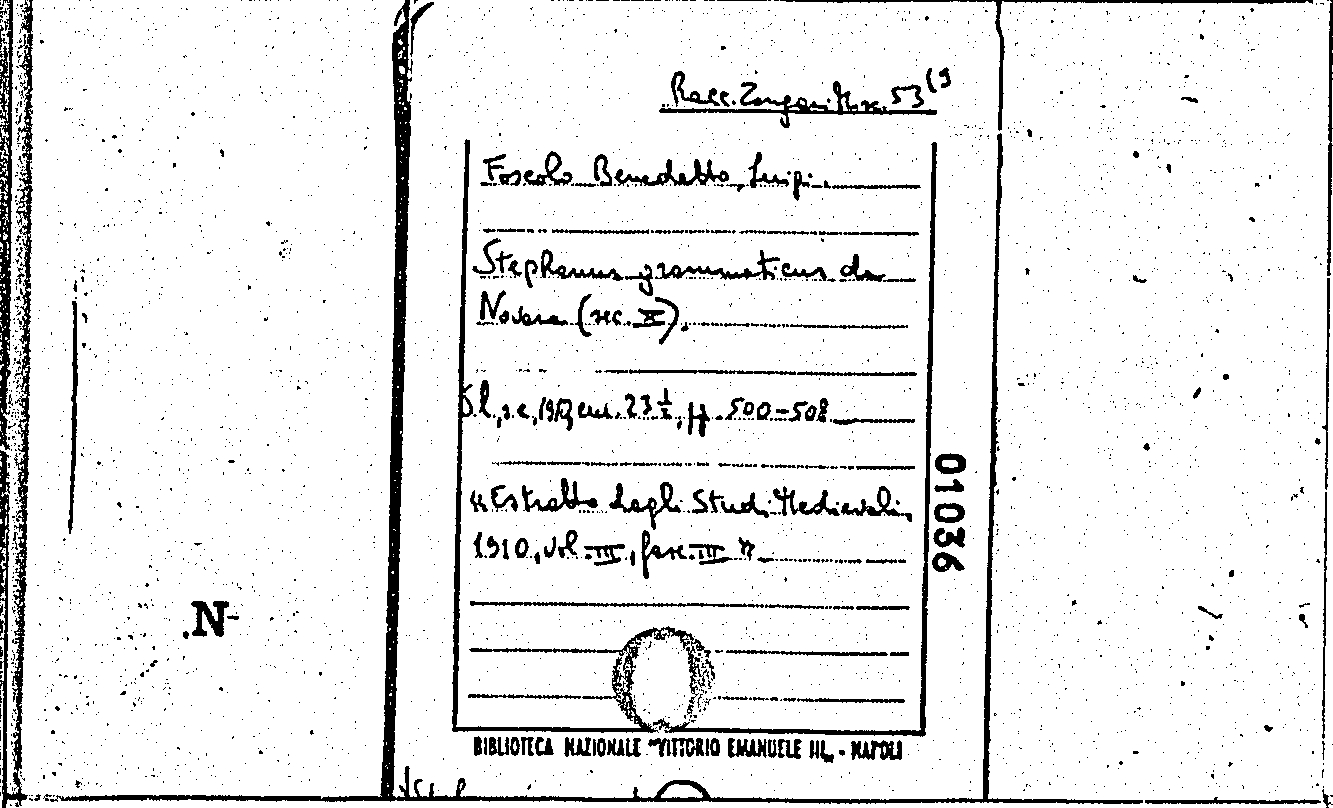 Racc. Zangari Misc. 53 (9
Foscolo Benedetto, Luigi.
Stephanus grammaticus da
Novara (sec. X).
S.l., s.e., cm. 23 ½, pp. 500-508
"Estratto dagli Studi Medievali,
1910, vol. III, fasc. III"
01036
.N-
BIBLIOTECA NAZIONALE "VITTORIO EMANUELE III„ - NAPOLI